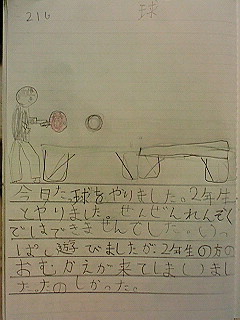 216
球
今日た球をやりました。2年生
とやりました。ぜんぜんれんぞく
ではできませんでした。いっ
ぱい遊びましたが2年生の方の
おむかえが来てしまいまし
た。たのしかった。